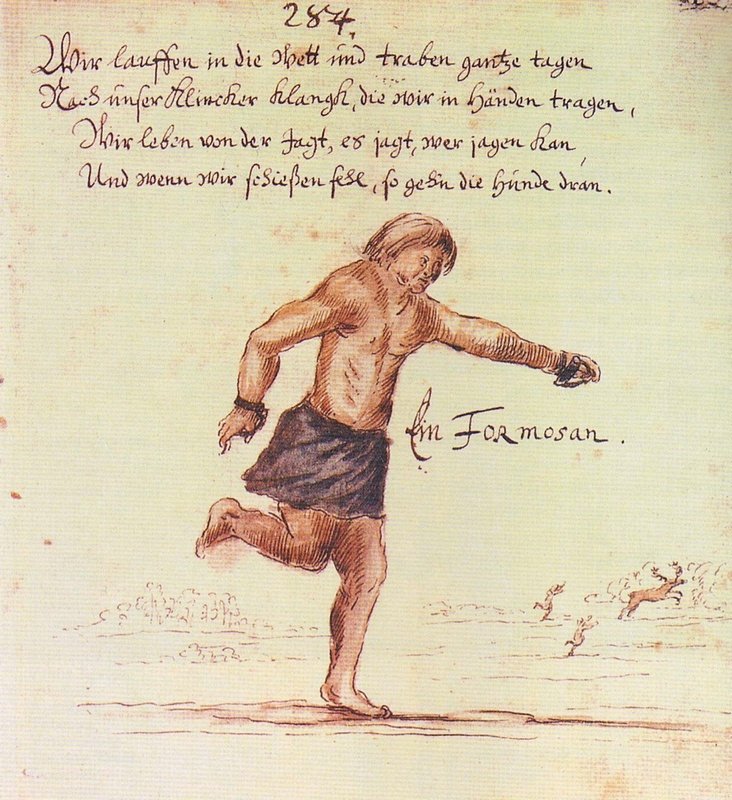 284.
Wir lauffen in die Wett und traben gantze tagen
Nach unser Klincker Klangk, die wir in Händen tragen,
Wir leben von der Jagt, es jagt, wer jagen kan
Und wenn wir schießen fehl, so gehn die Hunde dran.
Ein Formosan.